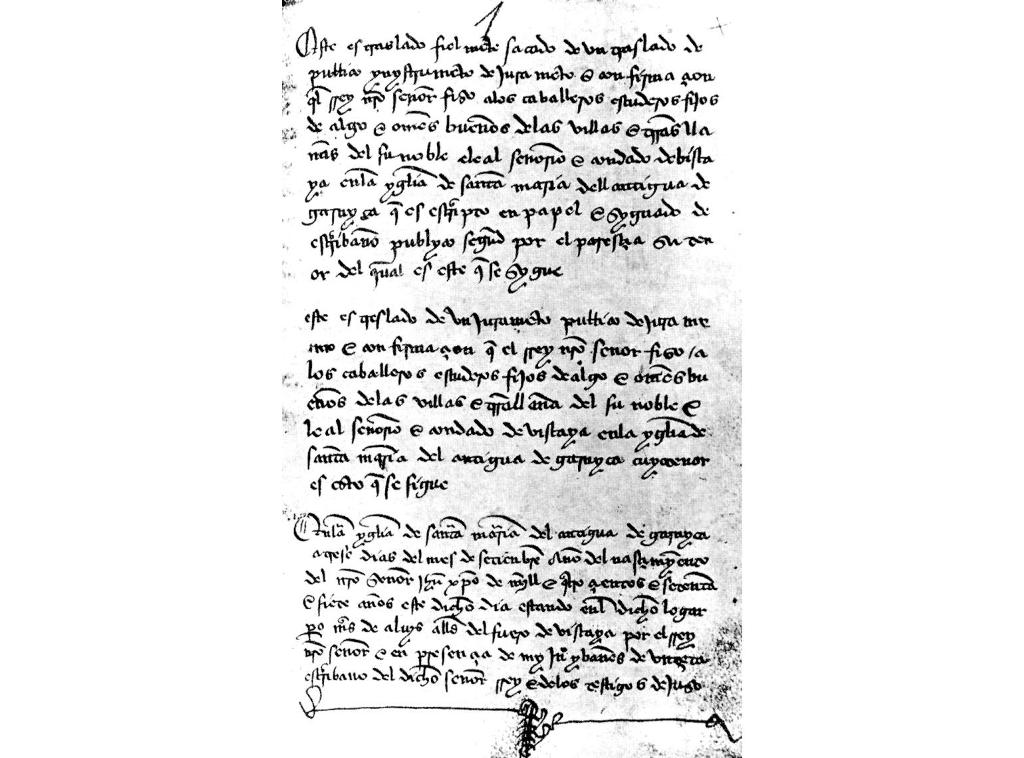 Este es traslado fiel mẽte sacado de vn traslado de
publico ynystrumẽto de Jura mẽto e con firma çon
q̃l rrey nr̃o señor fiso alos caballeros escuderos fijos
de algo e omẽs buenos delas villas e trr̃as lla
nas del su noble e leal señorio e condado de bisca
ya enla ygl̃ia de santa maria dell antigua de
garnyca q̃ es escripto en papel e sygnado de
escribano publyco segũd por el paresçia su ten
or del qual es este q̃ se sygue
este es treslado de vn Juramẽto publico de Jura me
nto e con firmaçon q̃ el rrey nr̃o señor fiso a
los caballeros escuderos fijos de algo e omẽs bu
enos delas villas e trr̃a llana del su noble e
leal señorio e condado de viscaya enla ygl̃ia de
santa maria del antigua de garnyca cuyo tenor
es esto q̃ se sigue
Enla ygl̃ia de santa maria del antigua de garnyca
a trese dias del mes de setienbre Año del nasçimyento
del nr̃o Señor Jhũ xp̃o de myll e q̃tro çientos e setenta
e siete años este dicho dia estando enl dicho logar
p̃o mr̃s de aluys allđ del fuero de viscaya por el rrey
nr̃o señor e en presençia de my Jũ ybañes de
escribano del dicho señor rrey e delos testigos de Juso